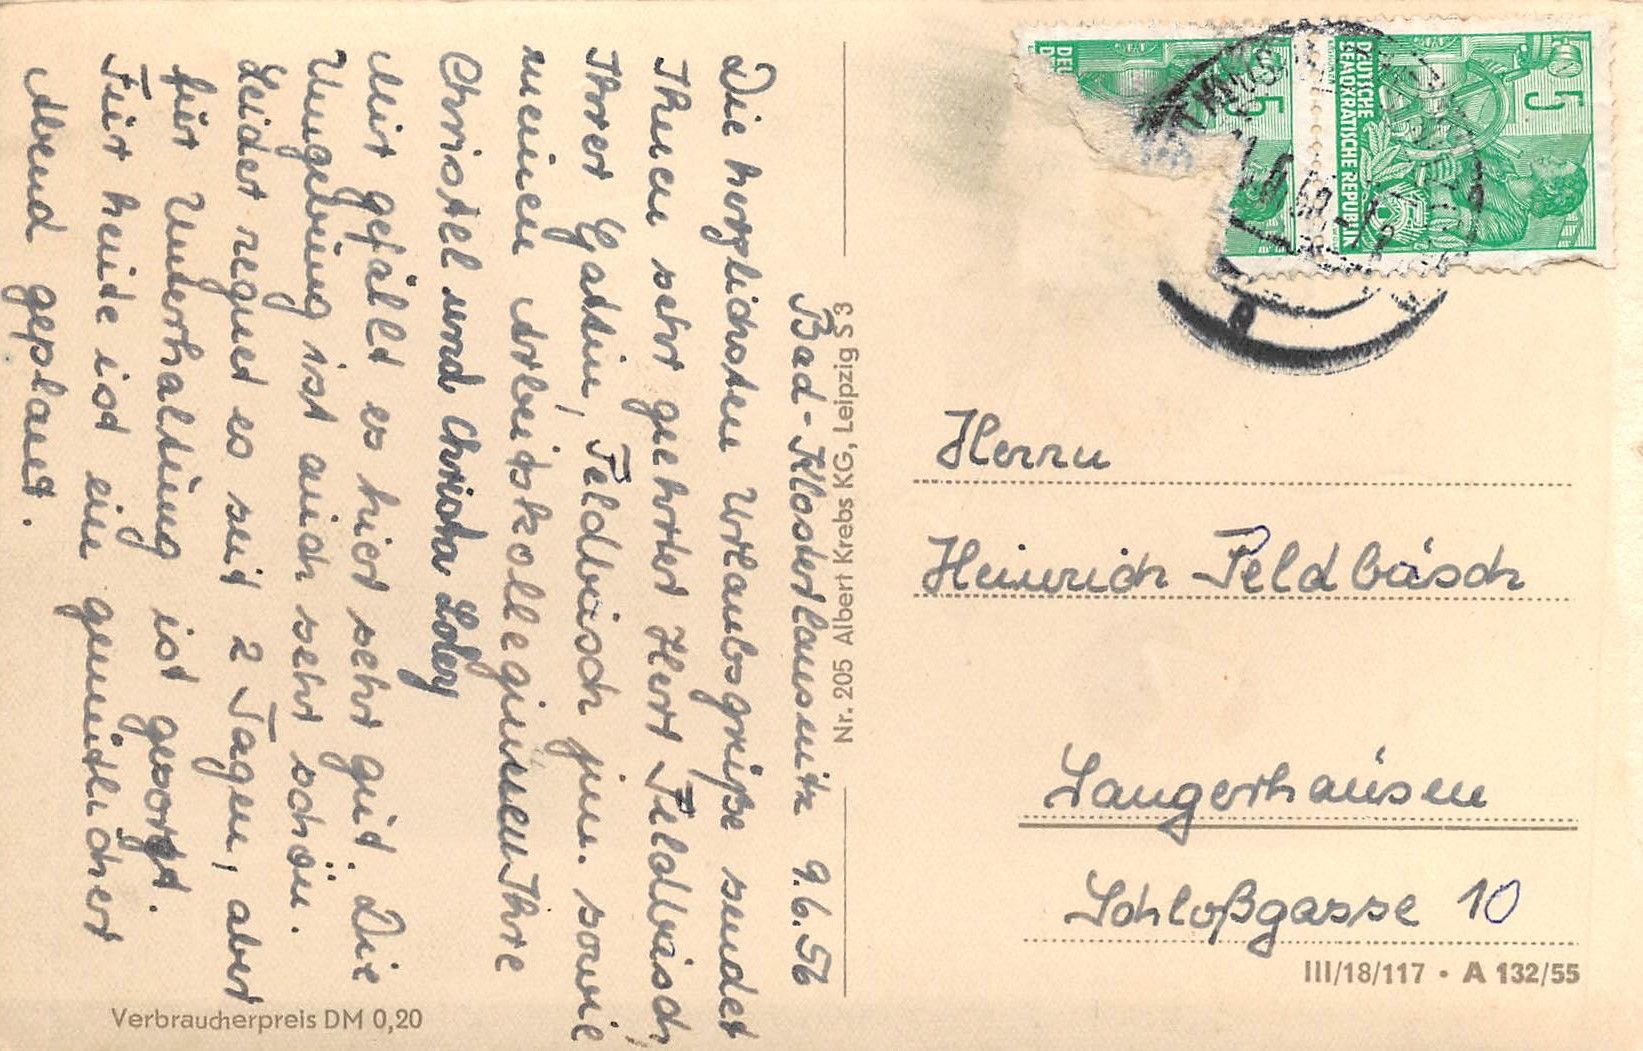 Bad-Klosterlausnitz 9.6.56
Die herzlichsten Urlaubsgrüße sendet
Ihnen sehr geehrter Herr Feldbäsch,
Ihrer Gattin, Feldbäsch jun. sowie
meinen Arbeitskolleginnen Ihre
Christel und Christa
Mir gefällt es hier sehr gut. Die
Umgebung ist auch sehr schön.
Leider regnet es seit 2 Tagen, aber
für Unterhaltung ist gesorgt.
Für heute ist ein gemütlicher
Abend geplant.
Verbraucherpreis DM 0,20
Nr. 205 Albert Krebs KG, Leipzig S 3
DEUTSCHE
DEMOKRATISCHE REPUBLIK
5
5
Herrn
Heinrich Feldbäsch
Sangerhausen
Schloßgasse 10
III/18/117 • A 132/55